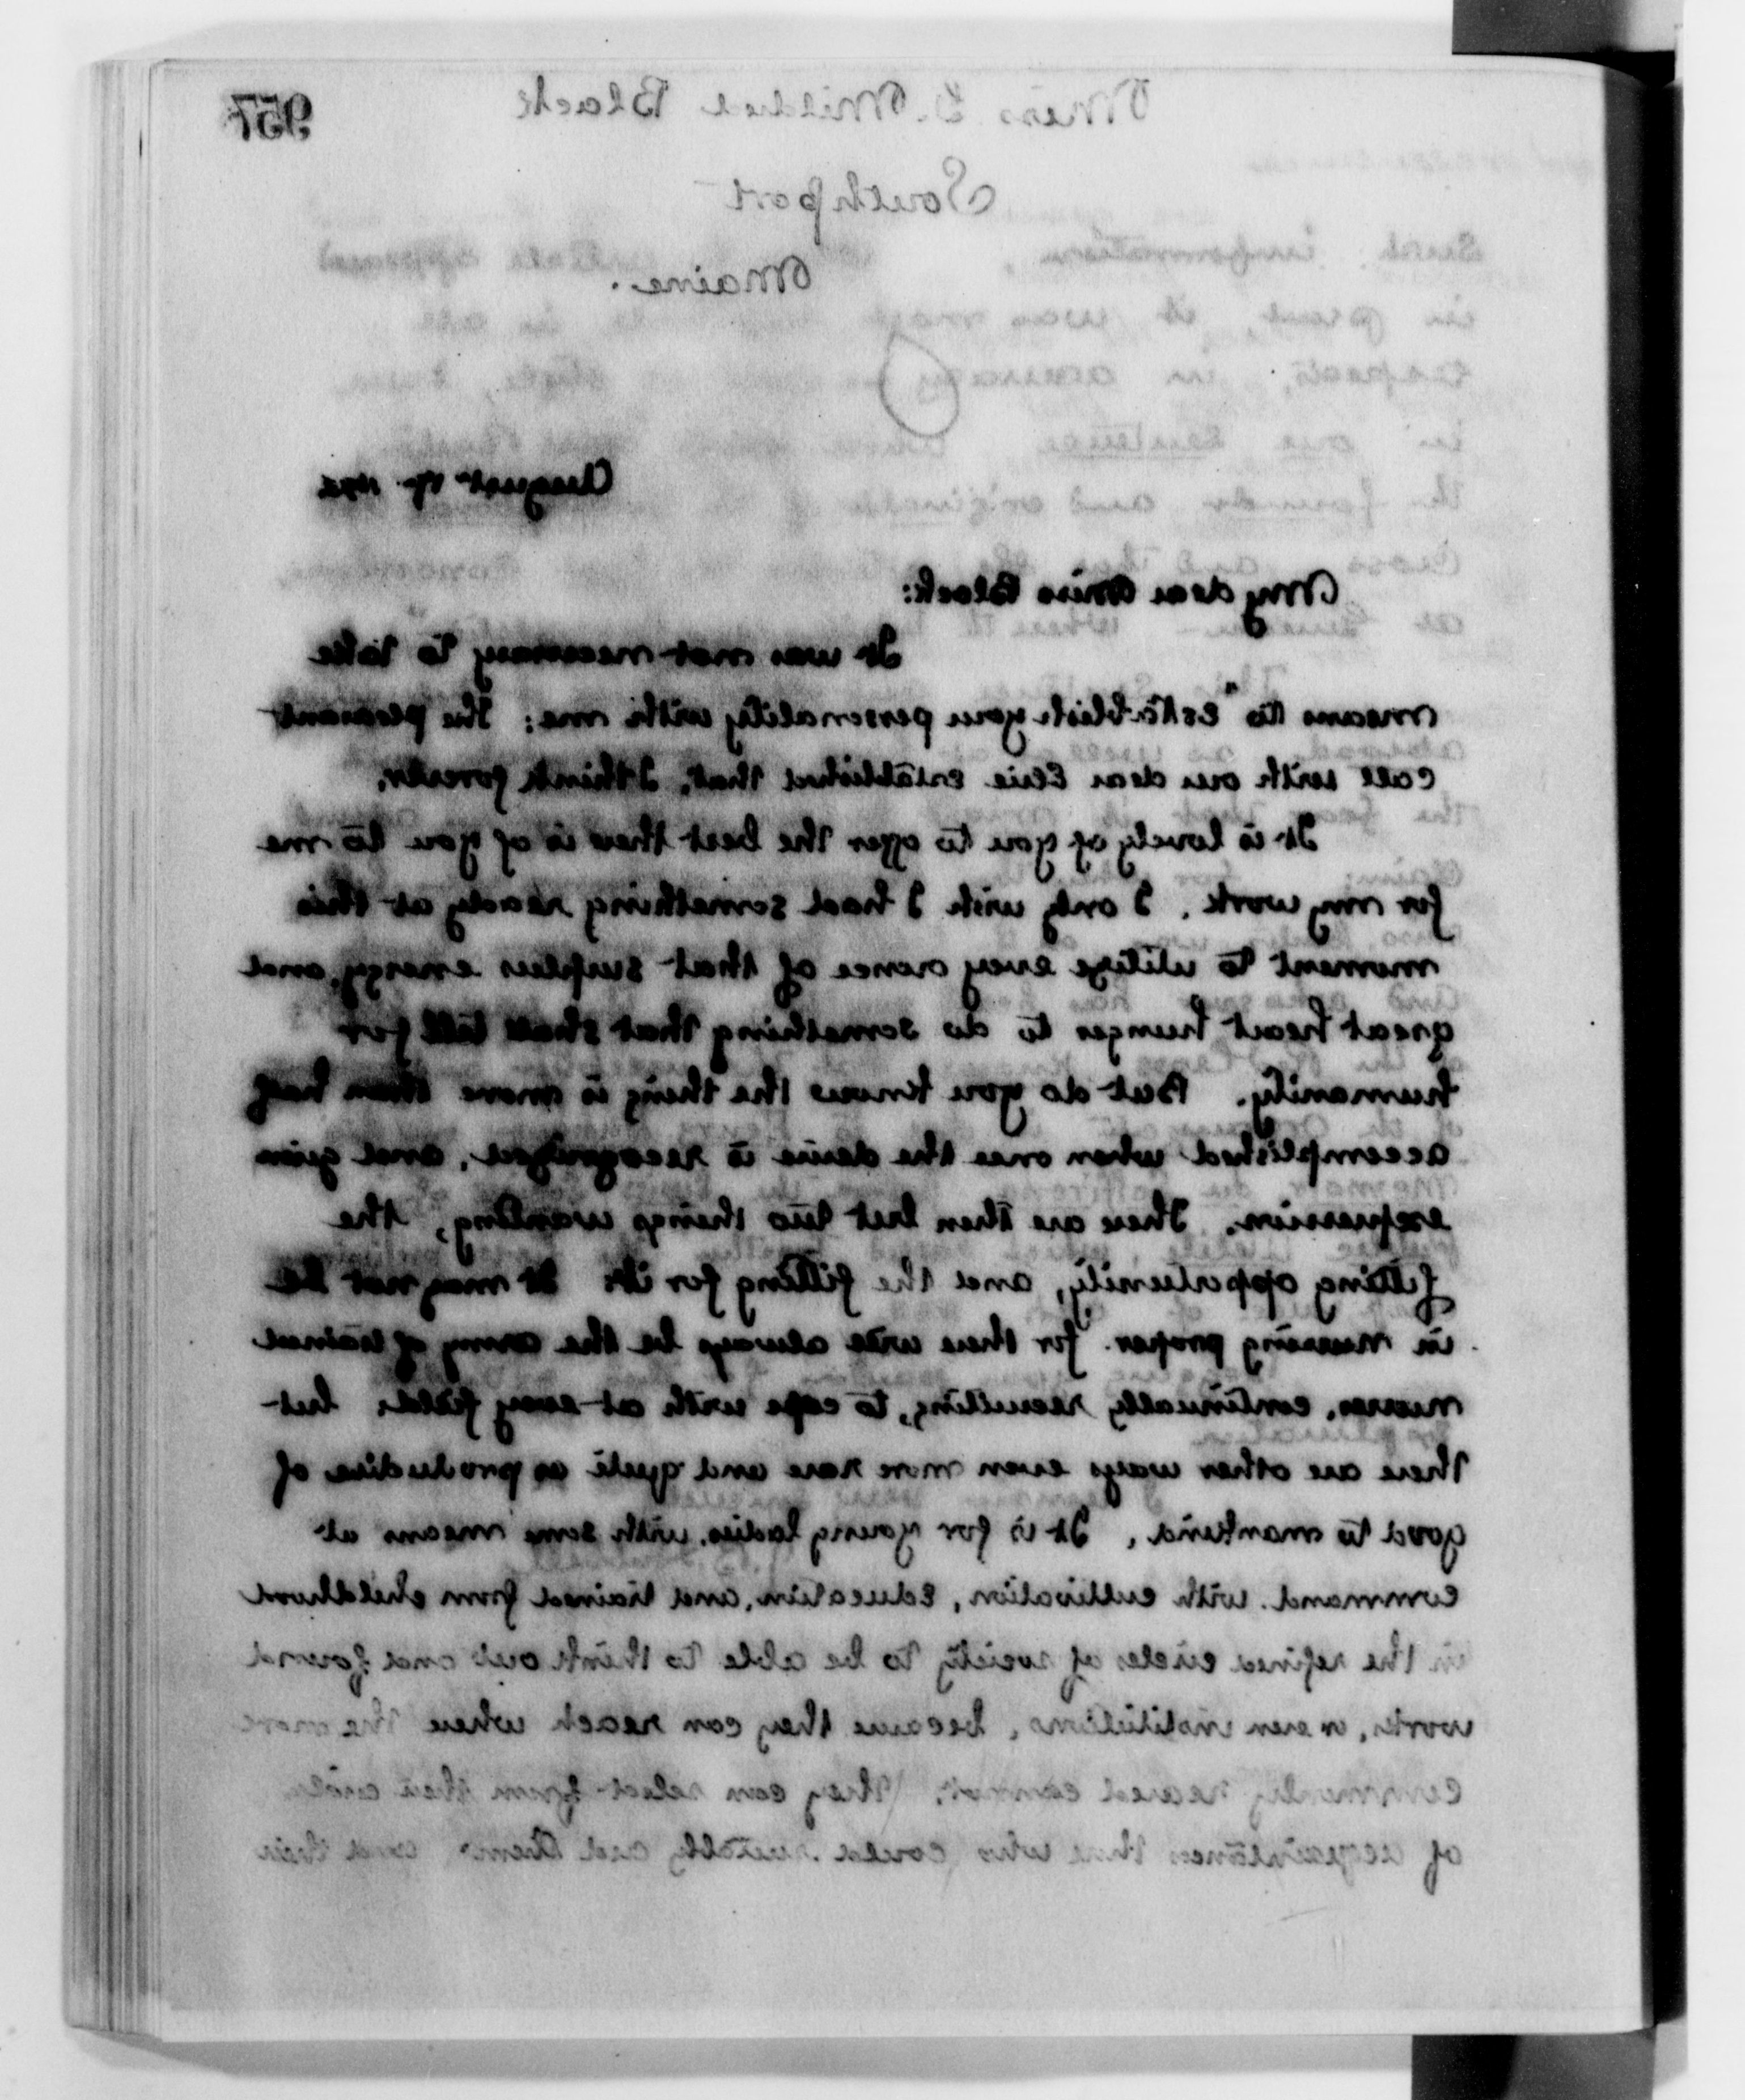 957
Miss E. Mildred Black
Southport
Maine.
August
My dear Miss Black:
It was not necessary to take
means to "establish your personality with me: the pleasant
call with our dear Elsie established that, I think forever.
It is lovely of you to offer the best there is of you to me
for my work. I only wish I had something ready at this
moment to utilize every ounce of that surplus energy, and
great heart hunger to do something that shall tell for
humanity. But do you know the thing is more than half
accomplished when once the desire is recognized, and given
expression. There are then but two things wanting, the
fitting opportunity, and the fitting for it. It may not be
in nursing proper. for there will always be the army of trained
nurses, continually recruiting, to cope with at every field. but
there are other ways even more rare and quite as productive of
good to mankind, It is for young ladies, with some means at
command. with cultivation, education, and trained from childhood
in the refined circles of society to be able to think out and found
work, or even institutions, because they can reach where the more
commonly reared cannot. They can select from their circle
of acquaintances those who could suitably aid them and their